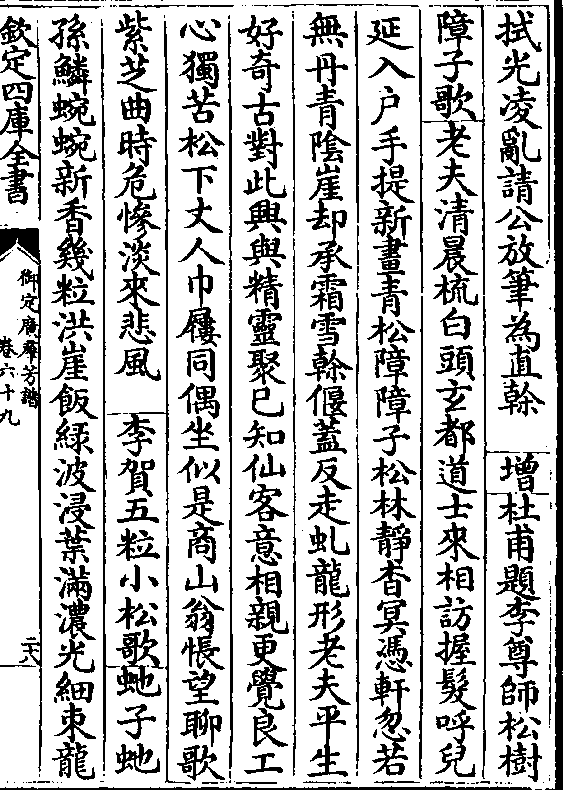 拭光凌亂請公放筆為直榦　增杜甫題李尊師松樹
障子歌老夫清晨梳白頭玄都道士來相訪握髮呼兒
延入户手提新畫青松障障子松林靜杳冥憑軒忽若
無丹青陰崖却承霜雪榦偃蓋反走虬龍形老夫平生
好奇古對此興與精靈聚已知仙客意相親更覺良工
心獨苦松下丈人巾屨同偶坐似是商山翁悵望聊歌
紫芝曲時危慘淡來悲風　李賀五粒小松歌虵子虵
孫鱗蜿蜿新香幾粒洪崖飯緑波浸葉滿濃光細束龍
欽定四庫全書
御定廣羣芳譜
卷六十九
二八